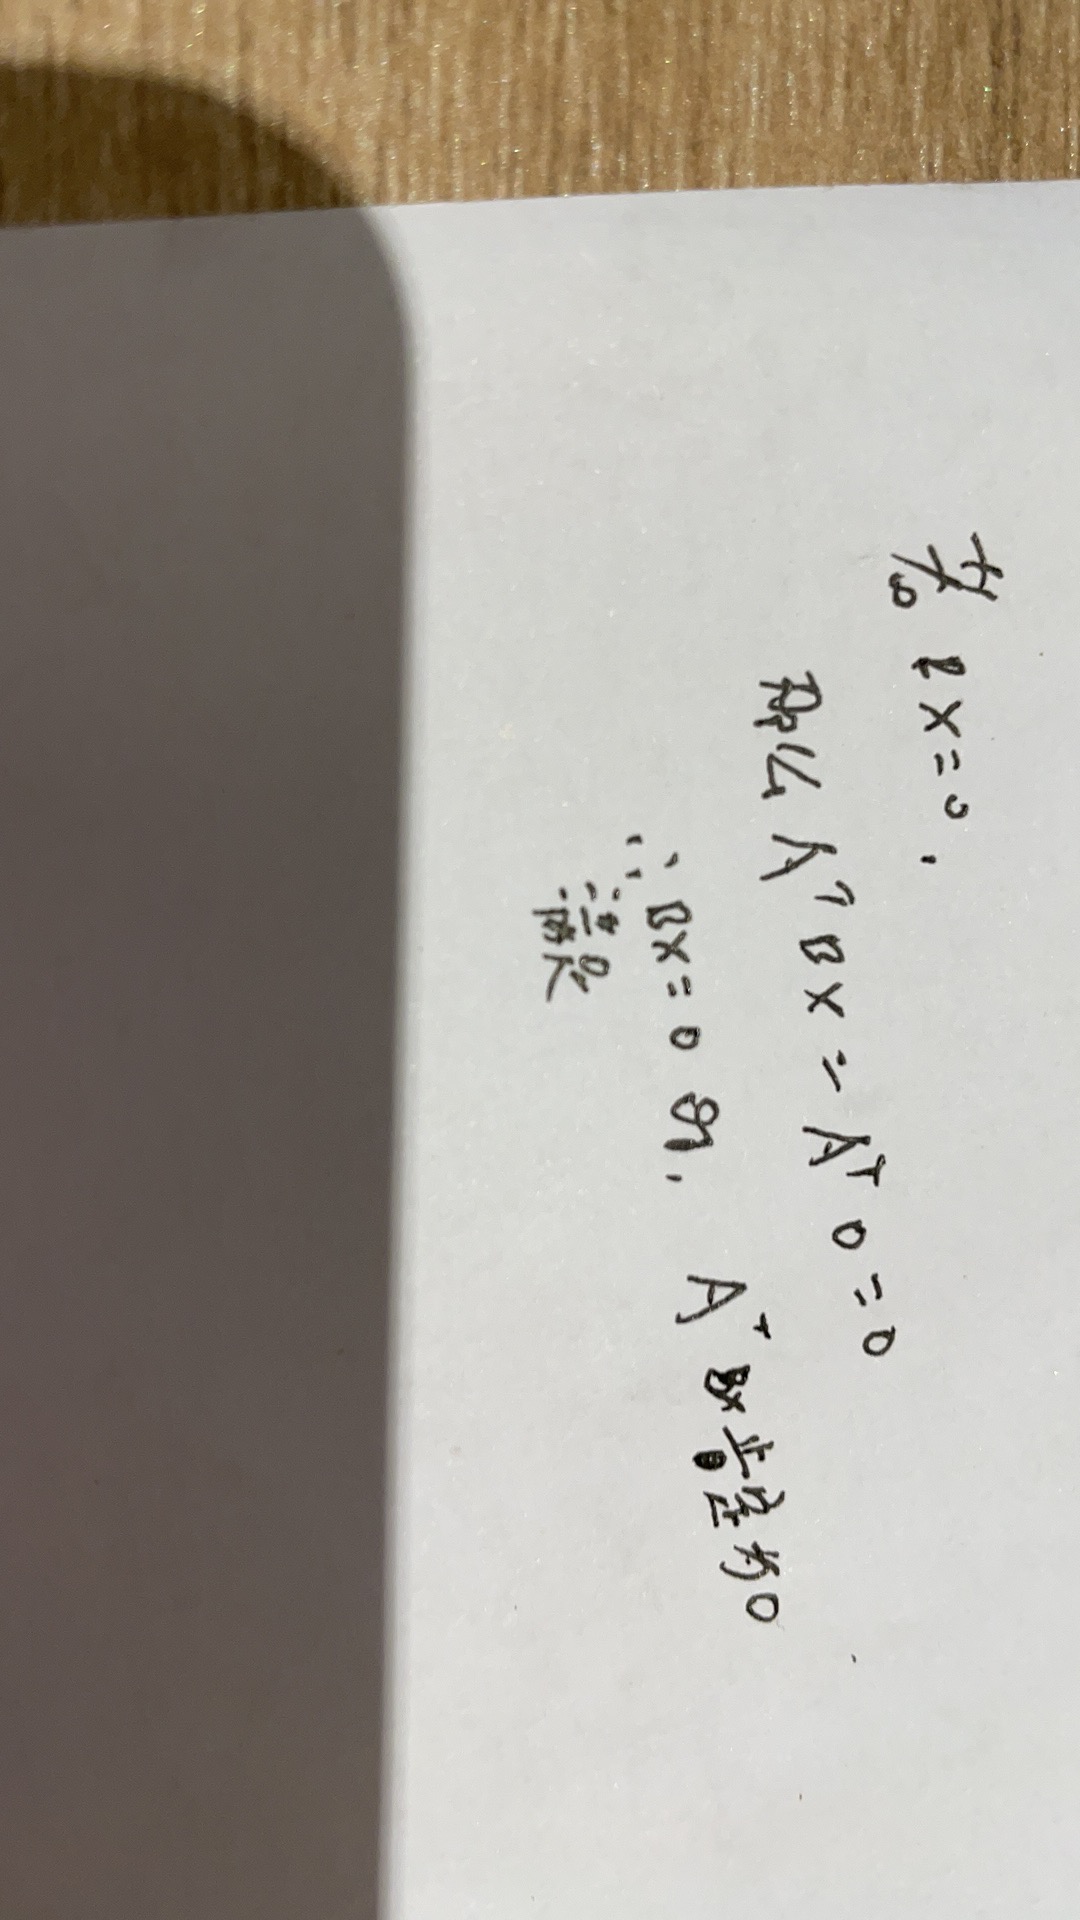 若 BX=0,
那么 A^T BX = A^T 0 = 0
∴ BX=0 时, A^T BX 必定为0
满足